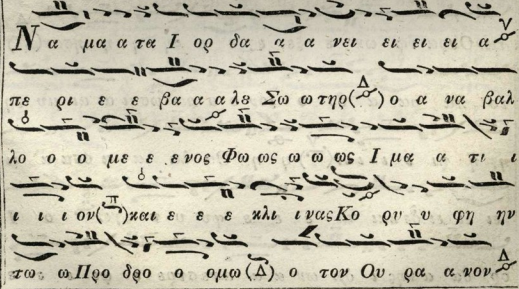 Ν α μα α τα Ι ορ δα α α νει ει ει ει α
πε ρι ε ε βα α α λε Σω ω τηρ (Δ) ο α να βαλ
λο ο ο με ε ε νος Φω ως ω ω ως Ι μα α τι ι
ι ι ι ον (π) και ε ε ε κλι ι νας Κο ρυ υ φη ην
τω ω Προ δρο ο ο ομω (Δ) ο τον Ου ρα α νον Δ